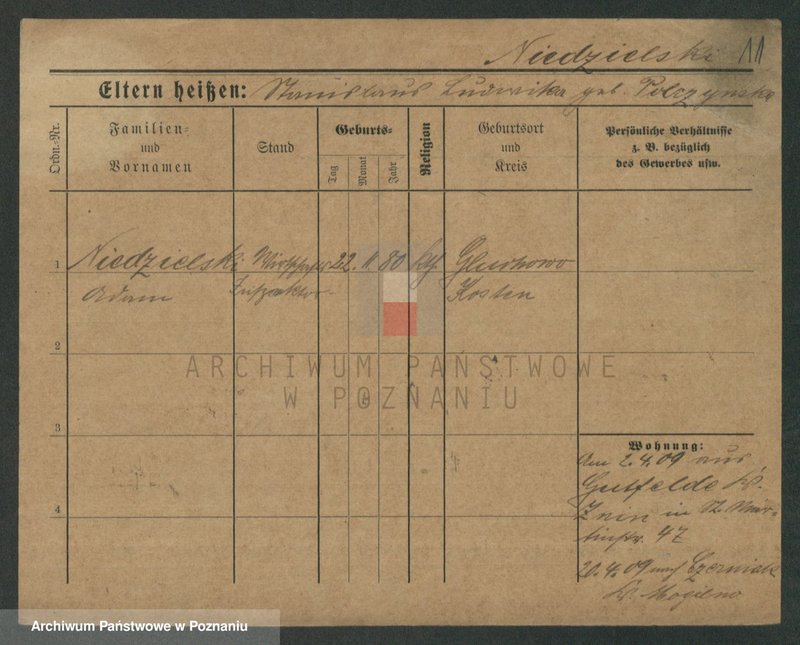 Niedzielski 11
Eltern heißen: Stanislaus Ludwika geb. Polczynska
Ordn.-Nr.
Familien-
und
Vornamen
Stand
Geburts-
Tag
Monat
Jahr
Religion
Geburtsort
und
Kreis
Persönliche Verhältnisse
z. B. bezüglich
des Gewerbes usw.
1 Niedzielski 22. 11. 80 kth Gluchowo
Adam Kosten
2
3
4
ARCHIWUM PAŃSTWOWE
W POZNANIU
Wohnung:
Am 2.4.09 aus
Gutfelde Kr.
Znin in St. Mar-
tinstr. 47
20.4.09 nach Czerniak
Kr. Mogilno
Archiwum Państwowe w Poznaniu